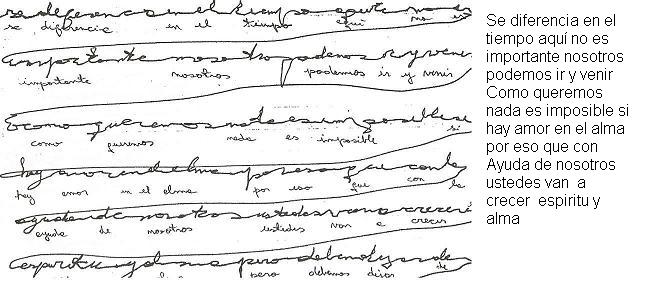 se diferencia en el tiempo aquí no es
se diferencia en el tiempo aquí no es
importante nosotros podemos ir y venir
importante nosotros podemos ir y venir
como queremos nada es imposible si
como queremos nada es imposible si
hay amor en el alma por eso que con la
hay amor en el alma por eso que con la
ayuda de nosotros ustedes van a crecer
ayuda de nosotros ustedes van a crecer
espiritu y alma pero debemos
pero debemos
Se diferencia en el
tiempo aquí no es
importante nosotros
podemos ir y venir
Como queremos
nada es imposible si
hay amor en el alma
por eso que con
Ayuda de nosotros
ustedes van a
crecer espiritu y
alma